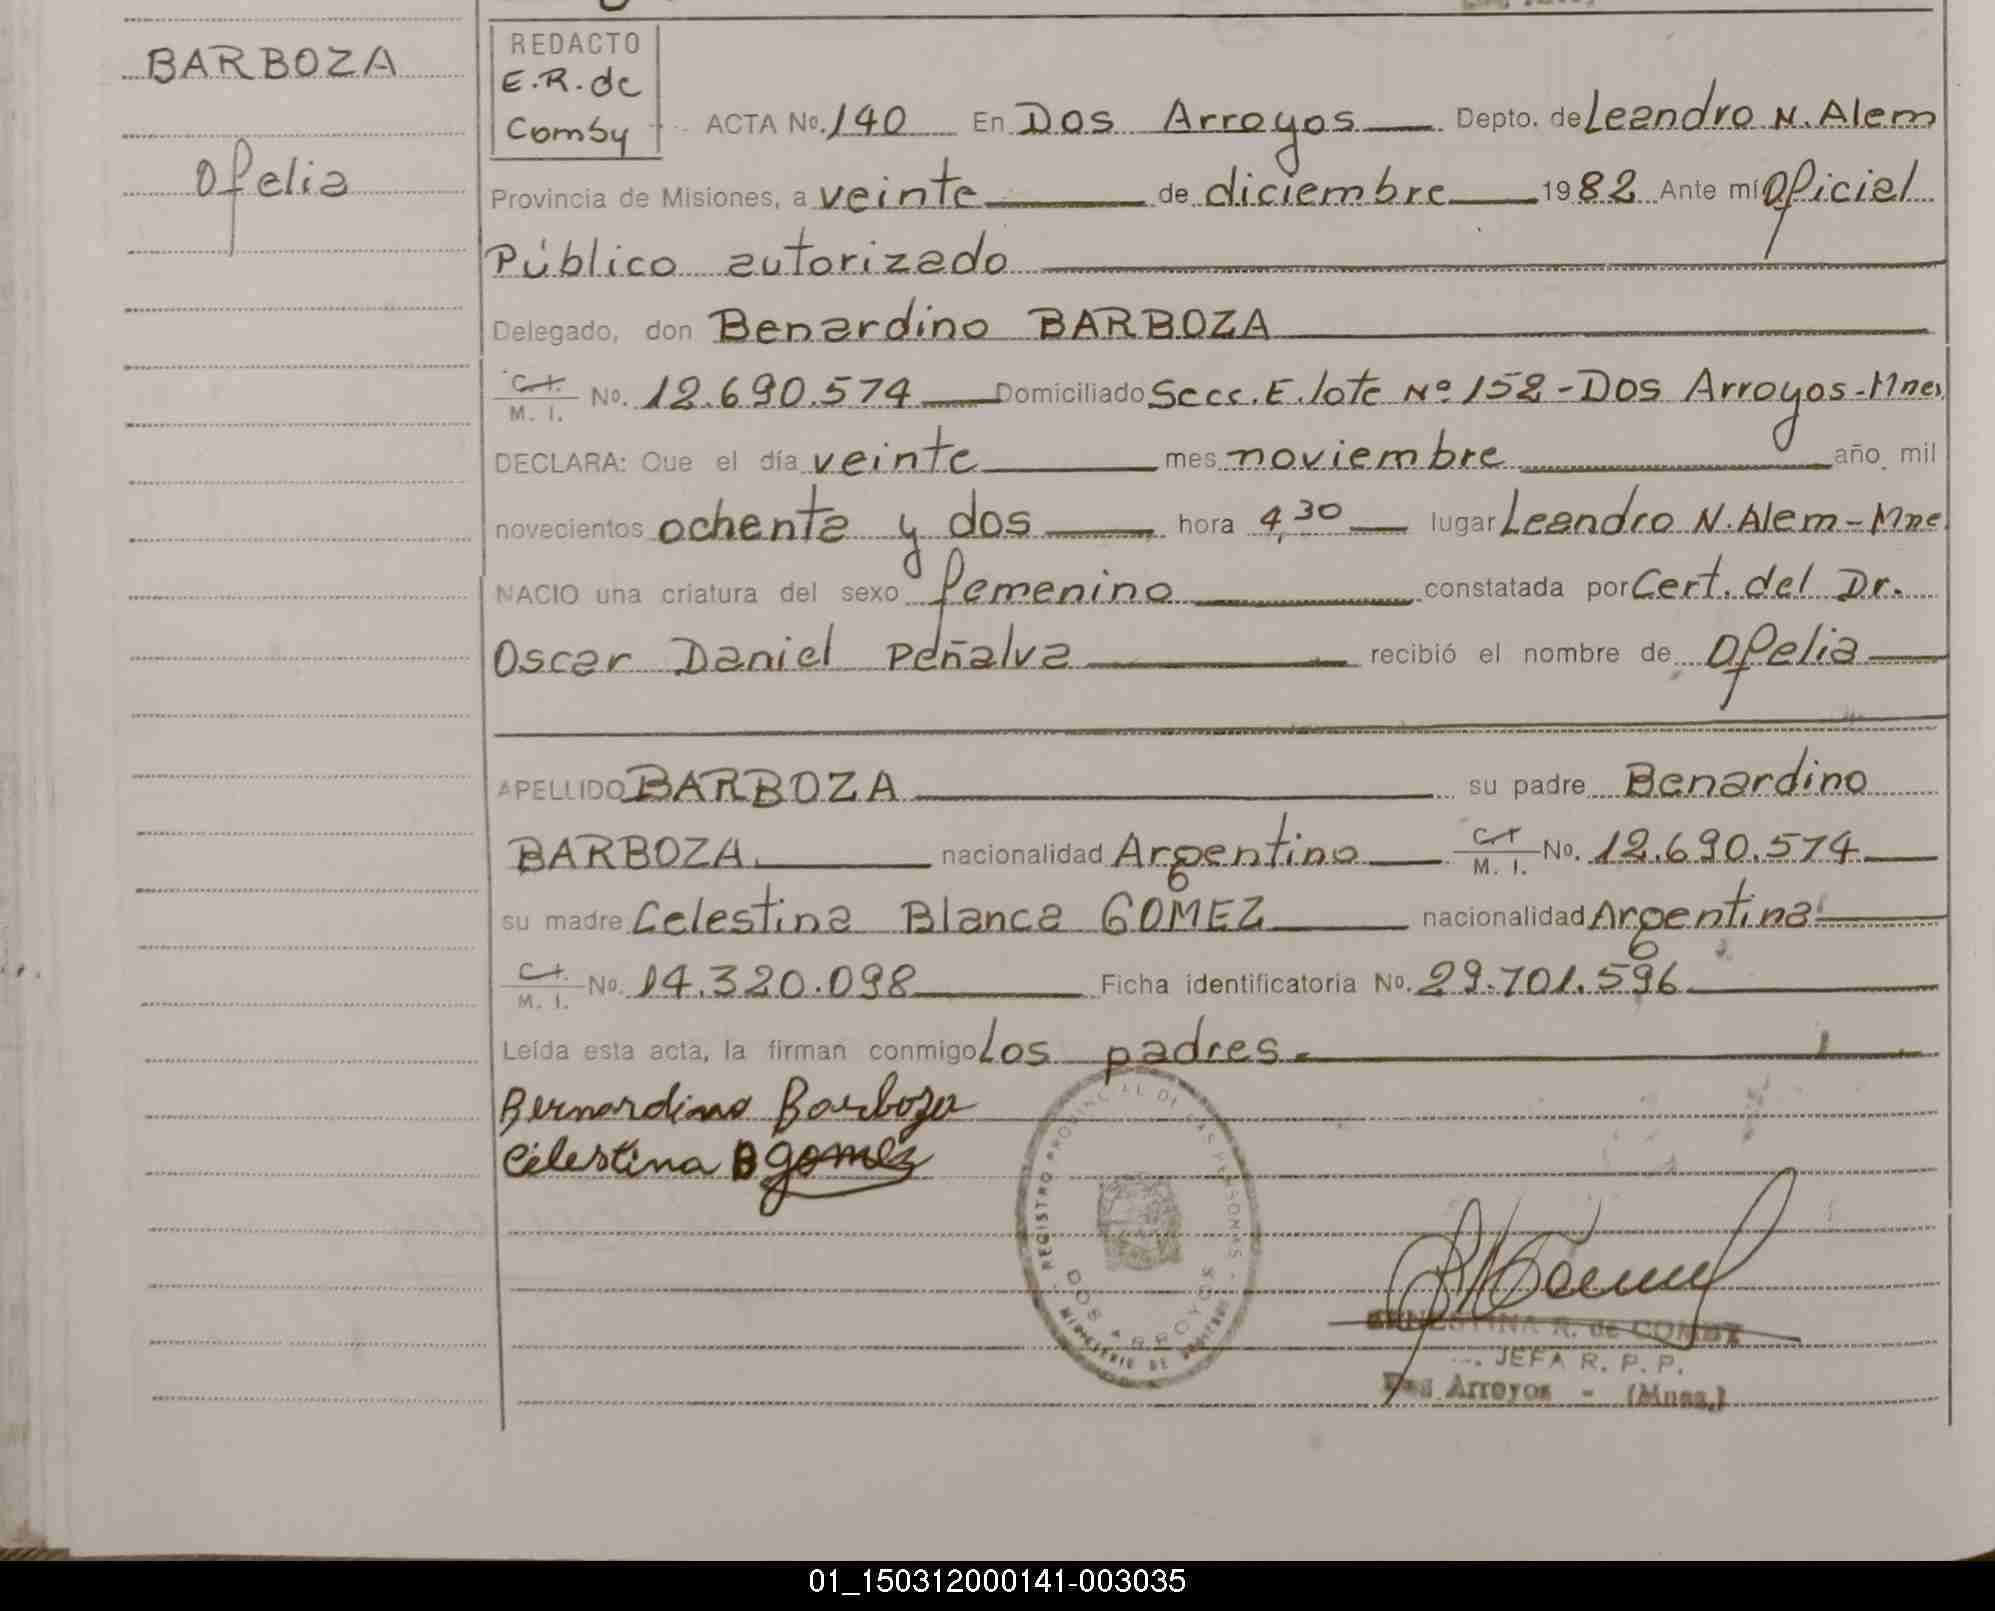 BARBOZA
Ofelia
REDACTO
E.R. de
Comby
ACTA No. 140 En Dos Arroyos Depto. de Leandro N. Alem
Provincia de Misiones, a veinte de diciembre 1982 Ante mí Oficial
Público autorizado
Delegado, don Benardino BARBOZA
C.I. M. I. No. 12.690.574 Domiciliado Secc. E. lote Nº 152 - Dos Arroyos - Mnes
DECLARA: Que el día veinte mes noviembre año mil
novecientos ochenta y dos hora 4,30 lugar Leandro N. Alem - Mne
NACIO una criatura del sexo femenino constatada por Cert. del Dr.
Oscar Daniel Peñalva recibió el nombre de Ofelia
APELLIDO BARBOZA su padre Benardino
BARBOZA. nacionalidad Argentino C.I. M. I. No. 12.690.574
su madre Celestina Blanca GOMEZ nacionalidad Argentina
C.I. M. I. No. 14.320.098 Ficha identificatoria No. 29.701.596
Leída esta acta, la firman conmigo Los padres.
Bernardino Barboza
Celestina B gomez
REGISTRO PROVINCIAL DE LAS PERSONAS
DOS ARROYOS
ERNESTINA R. de COMBY
JEFA R. P. P.
Dos Arroyos - (Mnes.)
01_150312000141-003035